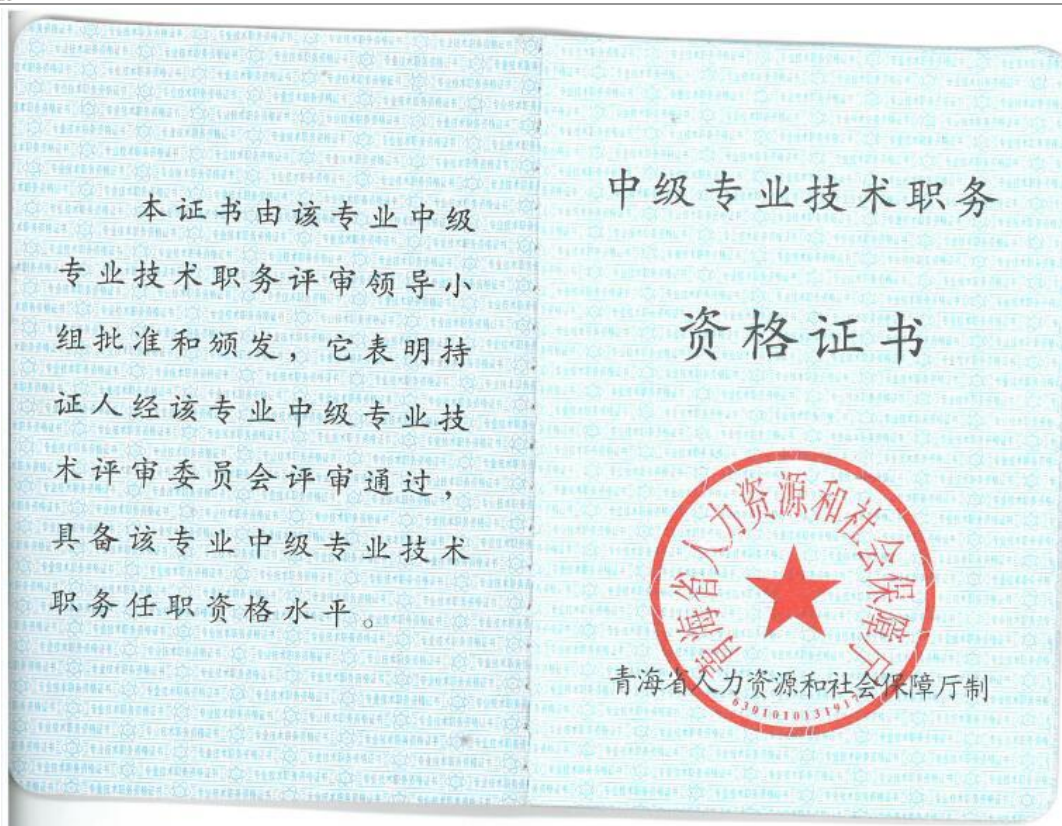 本证书由该专业中级
专业技术职务评审领导小
组批准和颁发，它表明持
证人经该专业中级专业技
术评审委员会评审通过，
具备该专业中级专业技术
职务任职资格水平。
中级专业技术职务
资格证书
青海省人力资源和社会保障厅
青海省人力资源和社会保障厅制